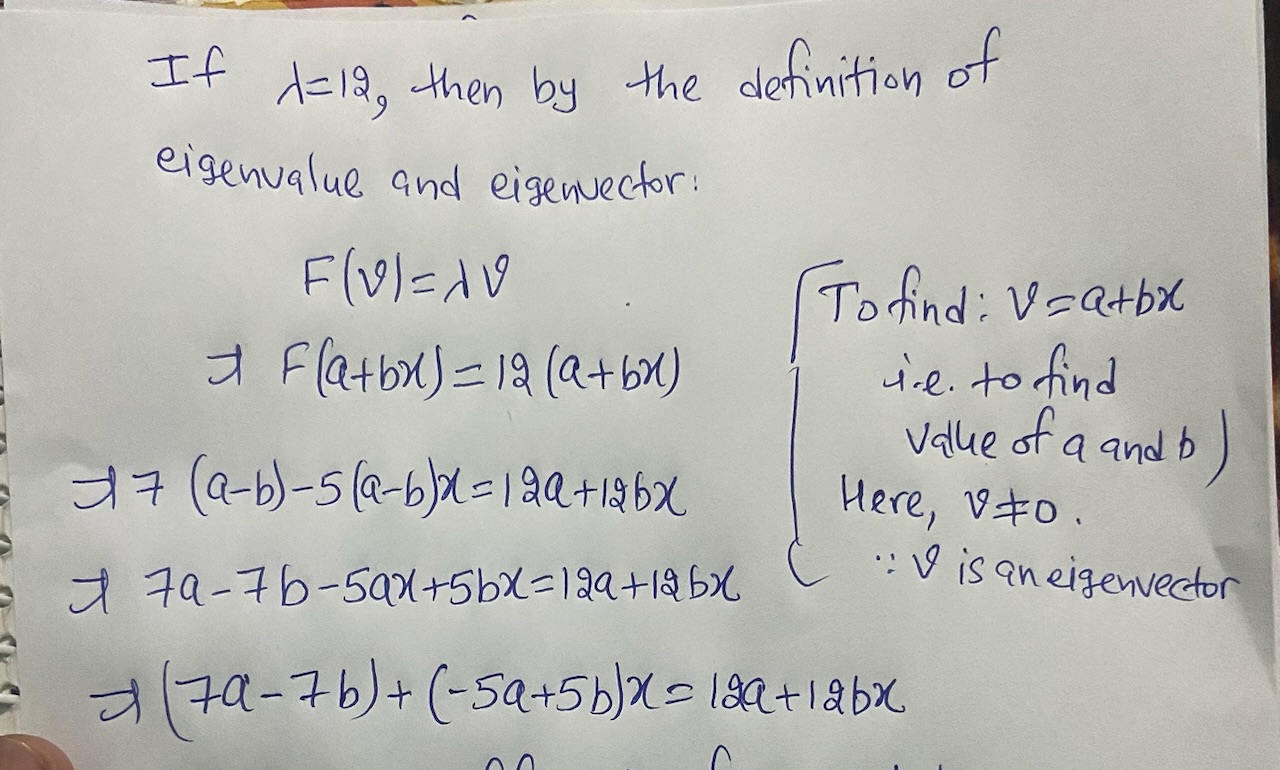 If λ=12, then by the definition of
eigenvalue and eigenvector:
F(v)=λv
⇒ F(a+bx)=12(a+bx)
⇒ 7(a-b)-5(a-b)x=12a+12bx
⇒ 7a-7b-5ax+5bx=12a+12bx
⇒ (7a-7b)+(-5a+5b)x=12a+12bx
To find: v=a+bx
i.e. to find
value of a and b)
Here, v≠0.
∵ v is an eigenvector